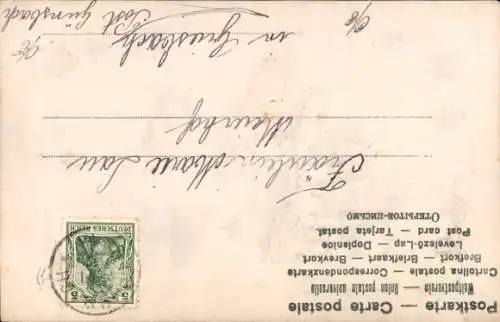 Postkarte — Carte postale
Weltpostverein — Union postale universelle
Cartolina postale — Correspondenzkarte
Brefkort — Briefkaart — Brevkort
Levelező-Lap — Dopisnice
Post card — Tarjeta postal.
Открытое письмо
DEUTSCHES REICH
5 5
Fräulein Marie Lau
Meierhof
in Griesbach
Post Günsbach